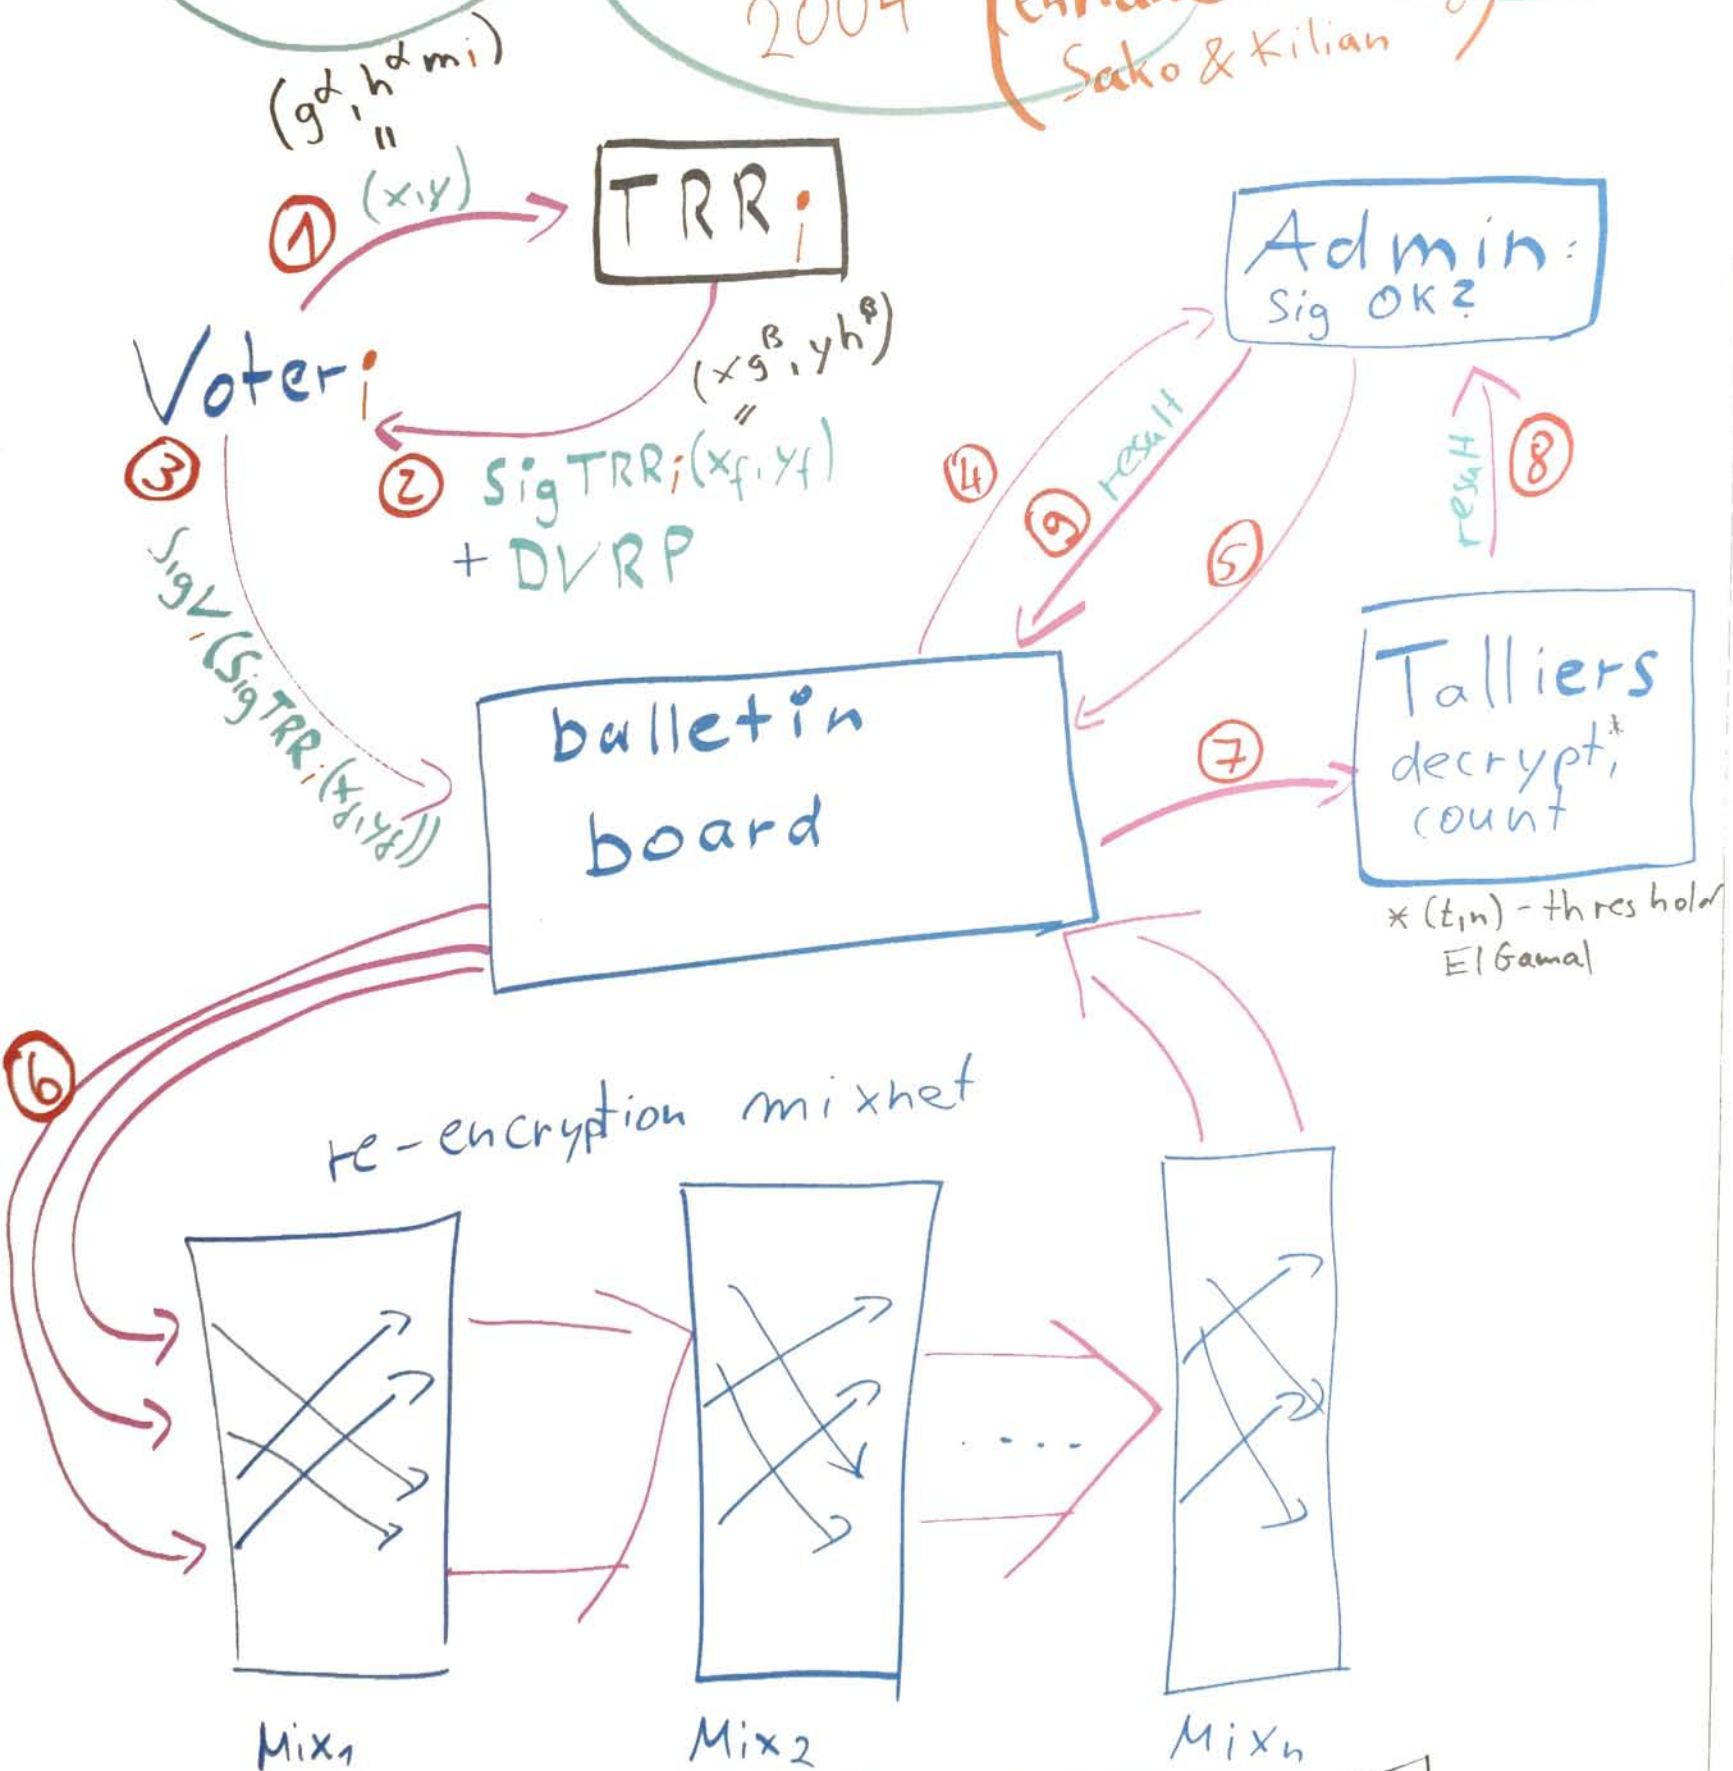 2004
Sako & Kilian
(g^α, h^α mi)
=
(x,y)
1
TRRi
Admin:
Sig OK?
Voteri
(xg^β, yh^β)
=
2
SigTRRi(xf, yf)
+ DVRP
3
SigVi(SigTRRi(xf, yf))
4
9
result
5
result
8
bulletin
board
7
Talliers
decrypt*,
count
* (t,n) - threshold
El Gamal
6
re-encryption mixnet
....
Mix1
Mix2
Mixn